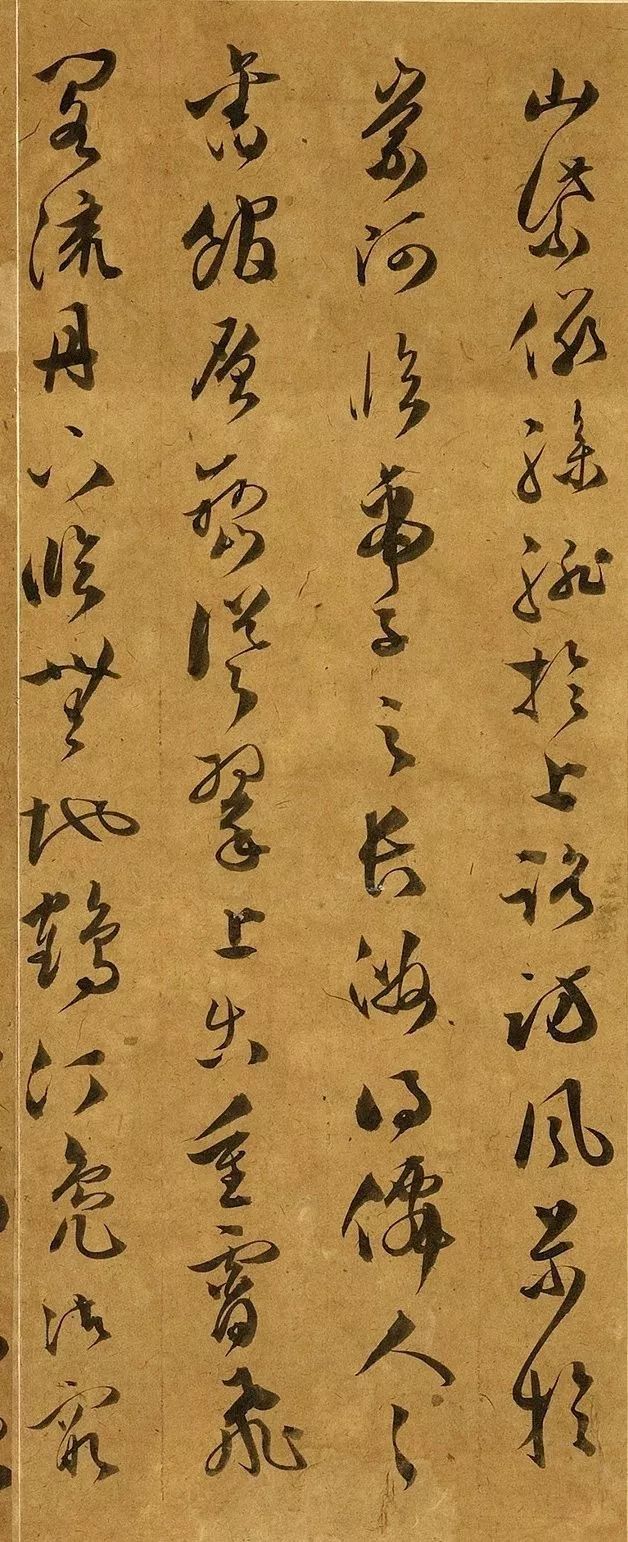 山紫儼驂騑於上路訪風景於
崇阿臨帝子之長得僊人之
舊館層巒聳翠上出重霄飛
閣流丹下臨無地鶴汀鳧渚窮